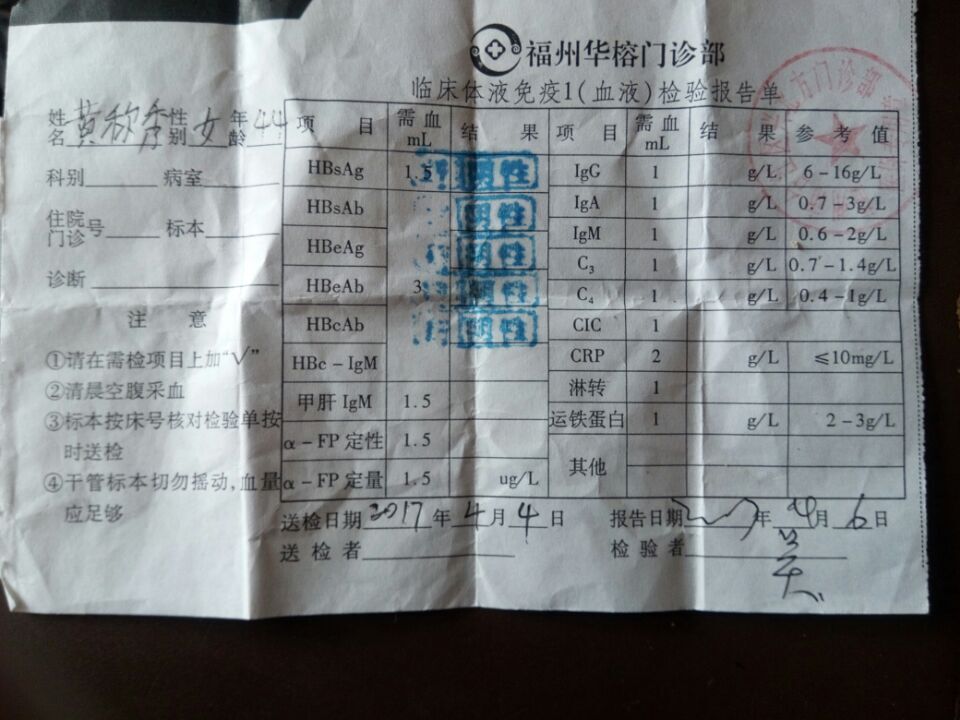 福州华榕门诊部
临床体液免疫1(血液)检验报告单
姓名 黄 秀 性别 女 年龄 44
科别 病室
住院门诊号 标本
诊断
注 意
①请在需检项目上加“√”
②清晨空腹采血
③标本按床号核对检验单按
时送检
④干管标本切勿摇动,血量
应足够
项 目 需血mL 结 果 项 目 需血mL 结 果 参 考 值
HBsAg 1.5 阴性 IgG 1 g/L 6-16g/L
HBsAb 阴性 IgA 1 g/L 0.7-3g/L
HBeAg 阴性 IgM 1 g/L 0.6-2g/L
HBeAb 3 阴性 C₃ 1 g/L 0.7-1.4g/L
HBcAb 阴性 C₄ 1 g/L 0.4-1g/L
CIC 1
HBc-IgM CRP 2 g/L ≤10mg/L
甲肝IgM 1.5 淋转 1
α-FP定性 1.5 运铁蛋白 1 g/L 2-3g/L
α-FP定量 1.5 ug/L 其他
送检日期 2017 年 4 月 4 日 报告日期 2017 年 4 月 6 日
送检者 检验者
方门诊部